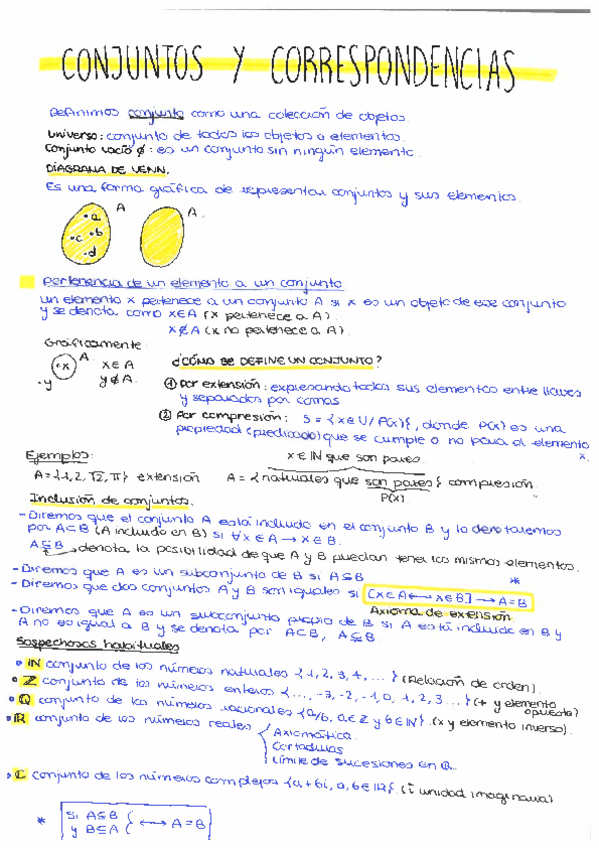 CONJUNTOS Y CORRESPONDENCIAS
Definimos conjunto como una colección de objetos.
Universo: conjunto de todos los objetos o elementos.
Conjunto vacío ∅: es un conjunto sin ningún elemento.
DIAGRAMA DE VENN.
Es una forma gráfica de representar conjuntos y sus elementos.
A A.
•a
•c •b
•d
Pertenencia de un elemento a un conjunto
un elemento x pertenece a un conjunto A si x es un objeto de ese conjunto
y se denota como x∈A (x pertenece a A).
x∉A (x no pertenece a A).
Gráficamente:
A x∈A
•x
•y y∉A.
¿CÓMO SE DEFINE UN CONJUNTO?
① Por extensión: expresando todos sus elementos entre llaves
y separados por comas
② Por compresión: S = {x∈U/P(x)}, donde P(x) es una
propiedad (predicado) que se cumple o no para el elemento
x.
Ejemplos: x∈IN que son pares.
A={-1,2,√2,π} extensión A = {naturales que son pares} compresión.
P(x).
Inclusión de conjuntos.
- Diremos que el conjunto A está incluido en el conjunto B y lo denotaremos
por A⊆B (A incluido en B) si ∀x∈A → x∈B.
A⊆B → denota la posibilidad de que A y B puedan tener los mismos elementos.
- Diremos que A es un subconjunto de B si A⊆B *
- Diremos que dos conjuntos A y B son iguales si [x∈A ↔ x∈B] → A=B
Axioma de extensión
- Diremos que A es un subconjunto propio de B si A está incluido en B y
A no es igual a B y se denota por A⊂B, A⊊B.
Sospechosos habituales
• IN conjunto de los números naturales {1,2,3,4,...} (Relación de orden).
• Z conjunto de los números enteros {...,-3,-2,-1,0,1,2,3...} (+ y elemento
opuesto)
• Q conjunto de los números racionales {a/b, a∈Z y b∈IN}. (x y elemento inverso).
• IR conjunto de los números reales
Axiomática.
Cortaduras
Límite de sucesiones en Q..
• C conjunto de los números complejos {a+bi, a,b∈IR} (i unidad imaginaria)
* si A⊆B
y B⊆A ↔ A=B